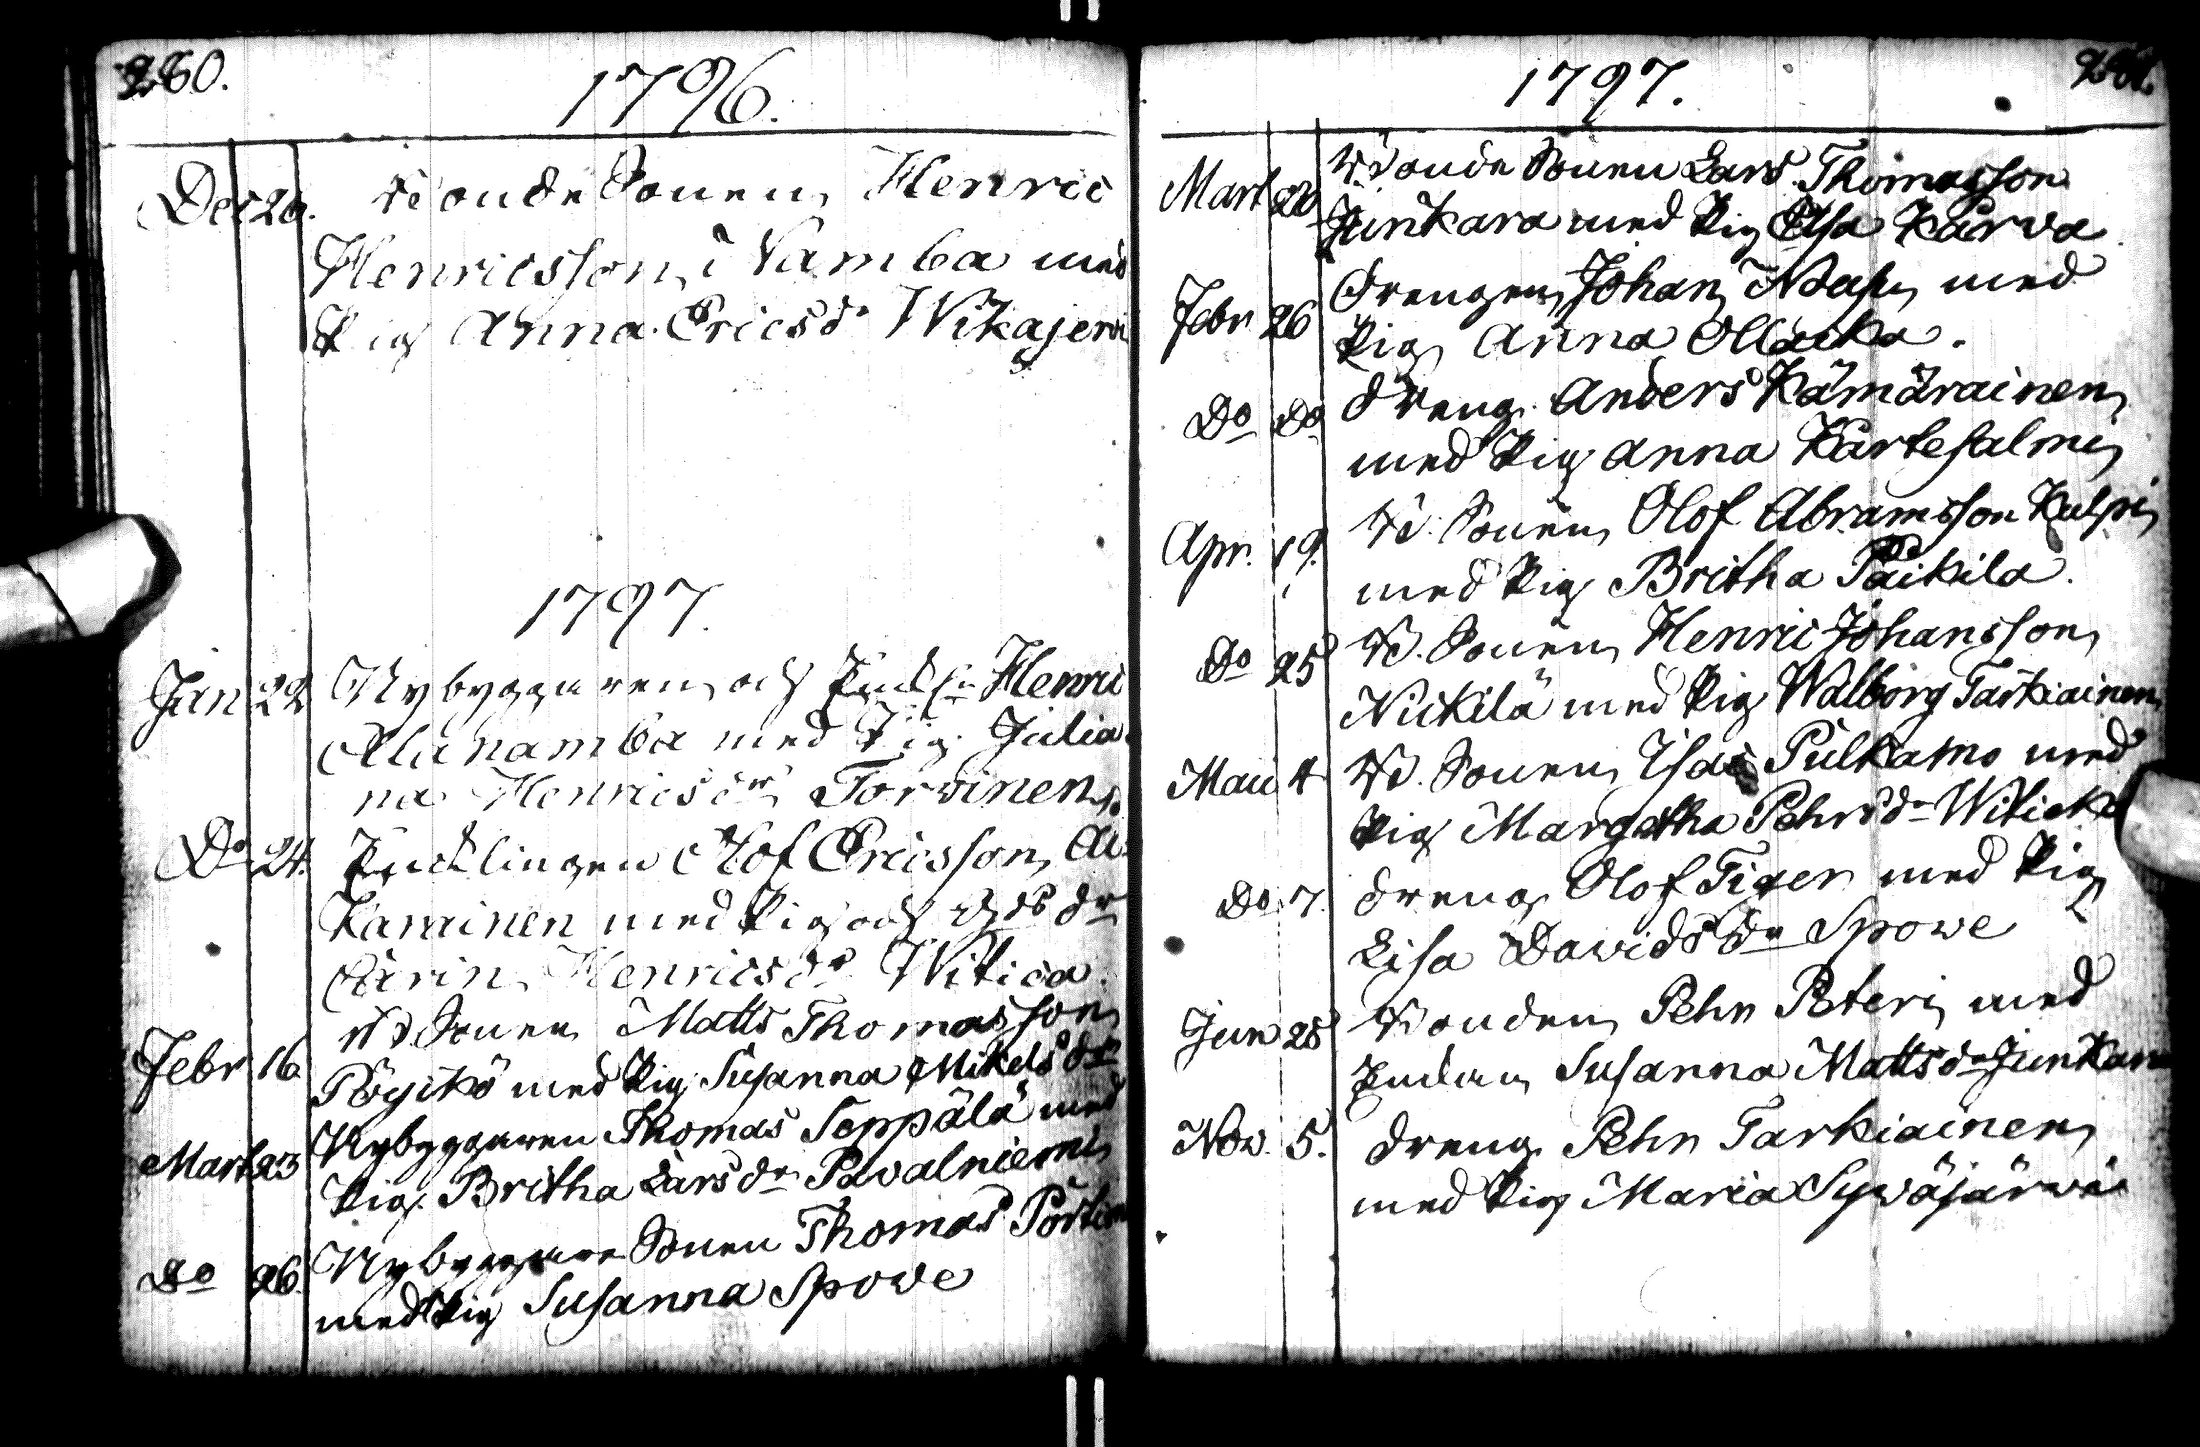 280.
1796.
Dec 26. Bonde Sonen Henric
Henricsson i Namba med
Pig Anna Ericsdr Wikajerwi
1797.
Jan 22 Nybyggaren och Henric
Alanamba med Pig. Julia
na Henricsdr Torvinen
Do 24. Enklingen Olof Ericsson Ala
Karainen med Pig och dr
Carin Henricsdr Witica.
Febr 16. Bd Sonen Matts Thomasson
Pöyskö med Pig Susanna Mikelsdr
Mart 23 Nybyggaren Thomas Seppälä med
Pig. Britha Larsdr Pavalniemi
Do 26. Nybyggare Sonen Thomas Portim
med Pig Susanna Spowe
1797. 281.
Mart 28 Bonde Sonen Lars Thomasson
Junkara med Pig Elsa Kärva
Febr 26 Drengen Johan med
Pig Anna Ollacka.
Do Do Dreng Anders Kämäräinen
med Pig Anna Kartesalmi
Apr. 19. Bd. Sonen Olof Abramsson Kulpi
med Pig Britha Paikila.
Do 25 Bd. Sonen Henric Johansson
Nickilä med Pig Walborg Tarkiainen
Maii 4 Bd. Sonen Isac Pulkamo med
Pig Margetha Pehrsdr Witicka
Do 7. Dreng Olof Tiger med Pig
Lisa Davidsdr Spowe
Jun 28 Bonden Pehr Peteri med
Enkan Susanna Mattsdr Junkara
Nov. 5. Dreng Pehr Tarkiainen
med Pig Maria Sywäjärwi